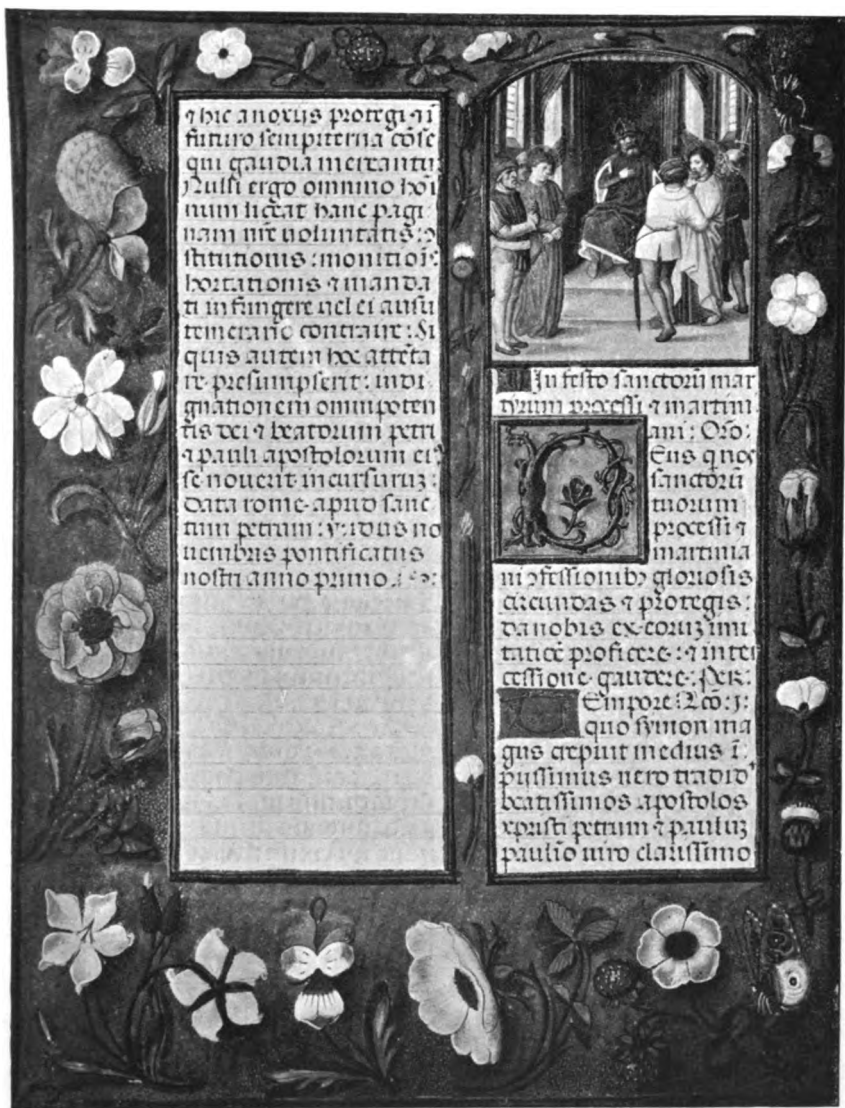 ⁊ hic a noxiis protegi ⁊ ī
futuro sempiterna cōse
qui gaudia mereantur
Nulli ergo omnino homi
num liceat hanc pagi
nam nr̄e uoluntatis:
stitutionis: monitiōis
hortationis ⁊ manda
ti infringere uel ei ausu
temerario contraire: Si
quis autem hoc attēta
re presumpserit: indi
gnationem omnipoten
tis dei ⁊ beatorum petri
⁊ pauli apostolorum eiꝰ
se nouerit incursurū:
Data rome apud sanc
tum petrum: v: idus no
uembris pontificatus
nostri anno primo.
In festo sanctorū mar
tyrum processi ⁊ martini
ani: Oro:
Eus q nos
sanctorū
tuorum
processi ⁊
martinia
ni ꝯfessionibꝫ gloriosis
circundas ⁊ protegis:
da nobis ex eorum imi
tatiōe proficere: ⁊ inter
cessione gaudere: Per:
Empore Leō: j:
quo symon ma
gus crepuit medius ī:
piissimus nero tradid
beatissimos apostolos
xpristi petrum ⁊ paulum
paulīo uiro clarissimo